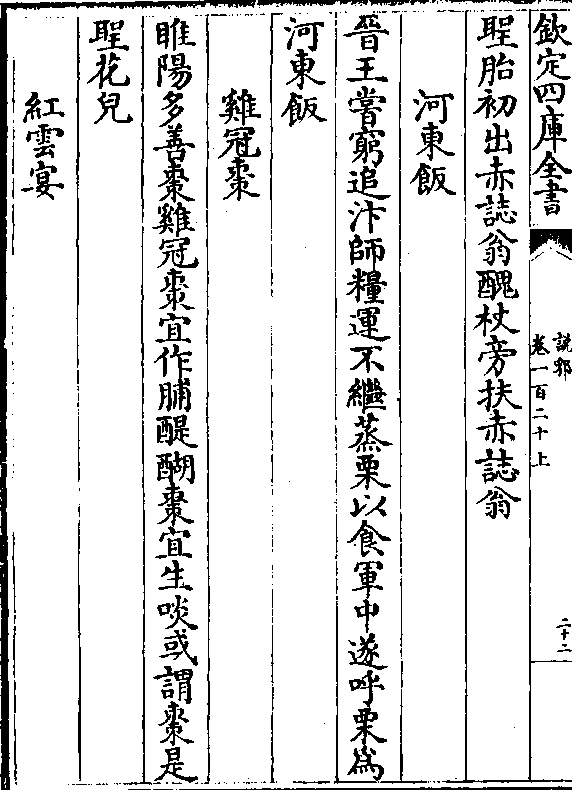 欽定四庫全書
說郛
卷一百二十上
二十二
聖胎初出赤誌翁醜杖旁扶赤誌翁
河東飯
晉王嘗窮追汴師糧運不繼蒸栗以食軍中遂呼栗爲
河東飯
雞冠棗
睢陽多善棗雞冠棗宜作脯醍醐棗宜生啖或謂棗是
聖花兒
紅雲宴